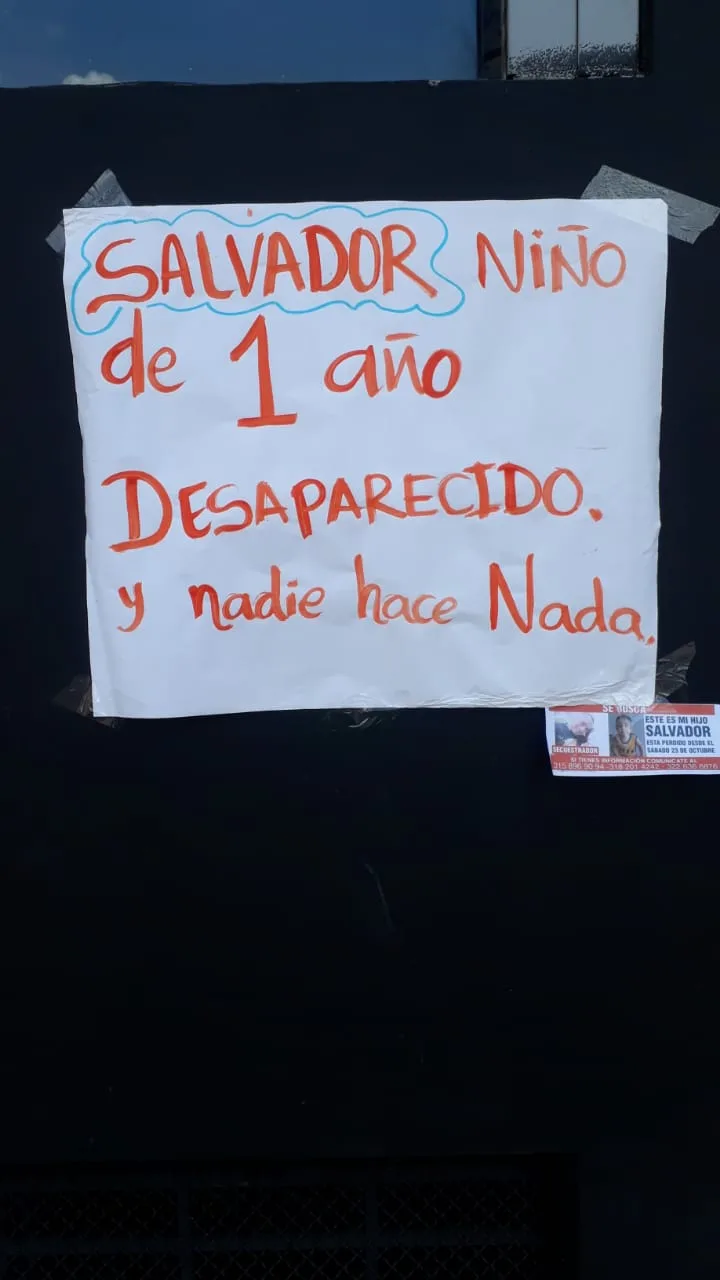 SALVADOR NIÑO
de 1 año
DESAPARECIDO.
y nadie hace Nada.
SE BUSCA
SECUESTRADOR
ESTE ES MI HIJO
SALVADOR
ESTA PERDIDO DESDE EL
SABADO 23 DE OCTUBRE
SI TIENES INFORMACIÓN COMUNICATE AL
315 896 90 94 - 318 201 4242 - 322 636 6876